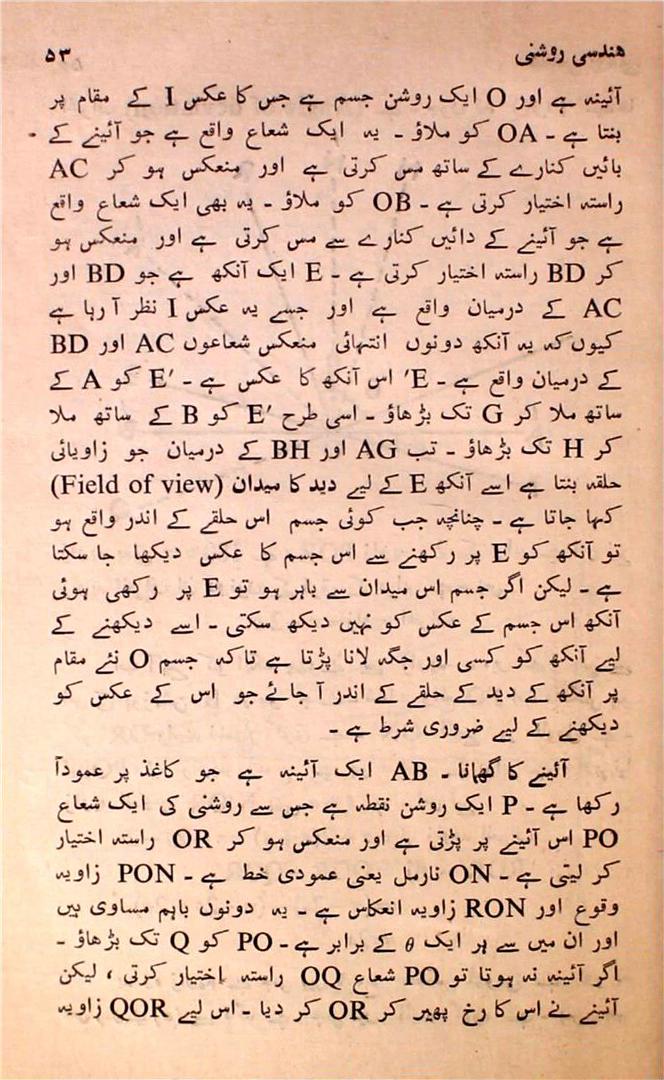 هندسی روشنی ۵۳
آئینہ ہے اور O ایک روشن جسم ہے جس کا عکس I کے مقام پر
بنتا ہے ۔ OA کو ملاؤ ۔ یہ ایک شعاع واقع ہے جو آئینے کے
بائیں کنارے کے ساتھ مس کرتی ہے اور منعکس ہو کر AC
راستہ اختیار کرتی ہے ۔ OB کو ملاؤ ۔ یہ بھی ایک شعاع واقع
ہے جو آئینے کے دائیں کنارے سے مس کرتی ہے اور منعکس ہو
کر BD راستہ اختیار کرتی ہے ۔ E ایک آنکھ ہے جو BD اور
AC کے درمیان واقع ہے اور جسے یہ عکس I نظر آ رہا ہے
کیوں کہ یہ آنکھ دونوں انتہائی منعکس شعاعوں AC اور BD
کے درمیان واقع ہے ۔ E′ اس آنکھ کا عکس ہے ۔ E′ کو A کے
ساتھ ملا کر G تک بڑھاؤ ۔ اسی طرح E′ کو B کے ساتھ ملا
کر H تک بڑھاؤ ۔ تب AG اور BH کے درمیان جو زاویائی
حلقہ بنتا ہے اسے آنکھ E کے لیے دید کا میدان (Field of view)
کہا جاتا ہے ۔ چنانچہ جب کوئی جسم اس حلقے کے اندر واقع ہو
تو آنکھ کو E پر رکھنے سے اس جسم کا عکس دیکھا جا سکتا
ہے ۔ لیکن اگر جسم اس میدان سے باہر ہو تو E پر رکھی ہوئی
آنکھ اس جسم کے عکس کو نہیں دیکھ سکتی ۔ اسے دیکھنے کے
لیے آنکھ کو کسی اور جگہ لانا پڑتا ہے تاکہ جسم O نئے مقام
پر آنکھ کے دید کے حلقے کے اندر آ جائے جو اس کے عکس کو
دیکھنے کے لیے ضروری شرط ہے ۔
آئینے کا گھمانا ۔ AB ایک آئینہ ہے جو کاغذ پر عموداً
رکھا ہے ۔ P ایک روشن نقطہ ہے جس سے روشنی کی ایک شعاع
PO اس آئینے پر پڑتی ہے اور منعکس ہو کر OR راستہ اختیار
کر لیتی ہے ۔ ON نارمل یعنی عمودی خط ہے ۔ PON زاویہ
وقوع اور RON زاویہ انعکاس ہے ۔ یہ دونوں باہم مساوی ہیں
اور ان میں سے ہر ایک θ کے برابر ہے ۔ PO کو Q تک بڑھاؤ ۔
اگر آئینہ نہ ہوتا تو PO شعاع OQ راستہ اختیار کرتی ، لیکن
آئینے نے اس کا رخ پھیر کر OR کر دیا ۔ اس لیے QOR زاویہ